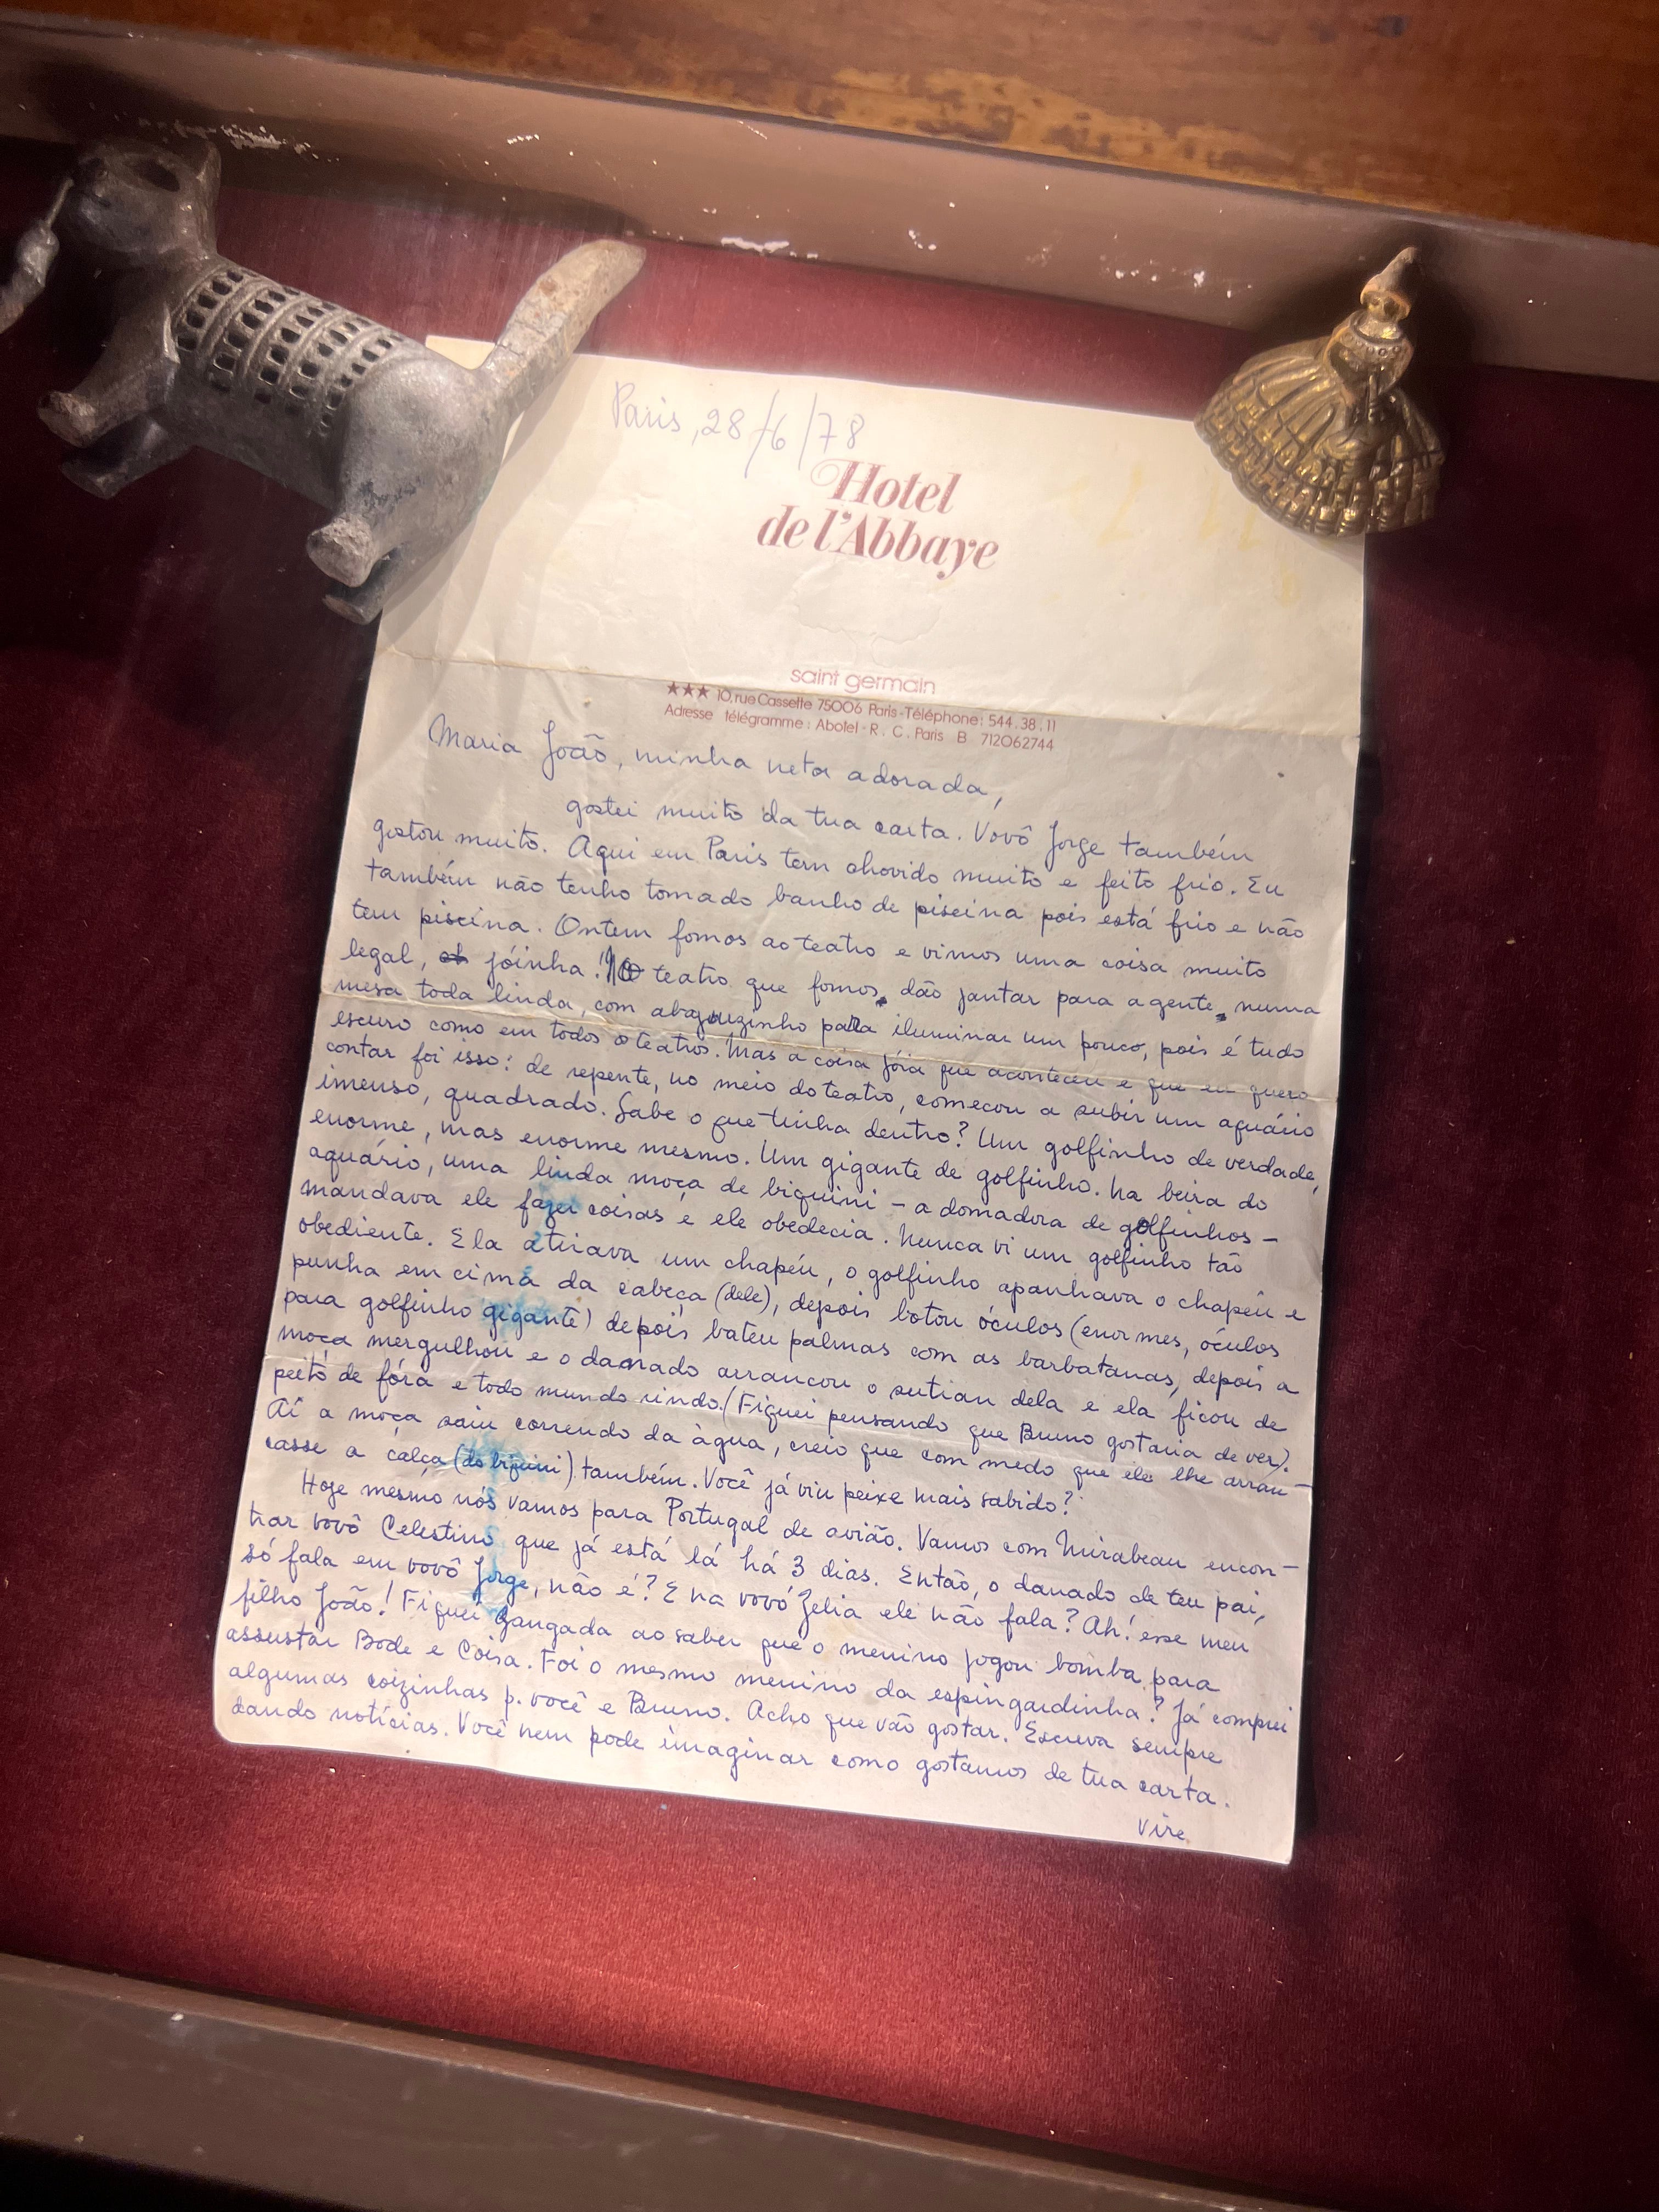 Paris, 28/6/78
Hotel
de l'Abbaye
saint germain
★★★ 10, rue Cassette 75006 Paris - Téléphone: 544.38.11
Adresse télégramme: Abotel - R. C. Paris B 712062744
Maria João, minha neta adorada,
gostei muito da tua carta. Vovô Jorge também
gostou muito. Aqui em Paris tem chovido muito e feito frio. Eu
também não tenho tomado banho de piscina pois está frio e não
tem piscina. Ontem fomos ao teatro e vimos uma coisa muito
legal, jóinha! teatro que fomos, dão jantar para a gente, numa
mesa toda linda, com abajouzinho para iluminar um pouco, pois é tudo
escuro como em todos os teatros. Mas a coisa jóia que aconteceu e que eu quero
contar foi isso: de repente, no meio do teatro, começou a subir um aquário
imenso, quadrado. Sabe o que tinha dentro? Um golfinho de verdade,
enorme, mas enorme mesmo. Um gigante de golfinho. Na beira do
aquário, uma linda moça de biquini - a domadora de golfinhos -
mandava ele fazer coisas e ele obedecia. Nunca vi um golfinho tão
obediente. Ela atirava um chapéu, o golfinho apanhava o chapéu e
punha em cima da cabeça (dele), depois botou óculos (enormes, óculos
para golfinho gigante) depois bateu palmas com as barbatanas, depois a
moça mergulhou e o danado arrancou o sutian dela e ela ficou de
peito de fóra e todo mundo rindo. (Fiquei pensando que Bruno gostaria de ver).
Aí a moça saiu correndo da àgua, creio que com medo que ele lhe arran-
casse a calça (do biquini) também. Você já viu peixe mais sabido?
Hoje mesmo nós vamos para Portugal de avião. Vamos com Mirabeau encon-
trar vovô Celestino que já está lá há 3 dias. Então, o danado de teu pai,
só fala em vovô Jorge, não é? E na vovó Zelia ele não fala? Ah! esse meu
filho João! Fiquei zangada ao saber que o menino jogou bomba para
assustar Bode e Coisa. Foi o mesmo menino da espingardinha? Já comprei
algumas coizinhas p. você e Bruno. Acho que vão gostar. Escreva sempre
dando notícias. Você nem pode imaginar como gostamos de tua carta.
Vire